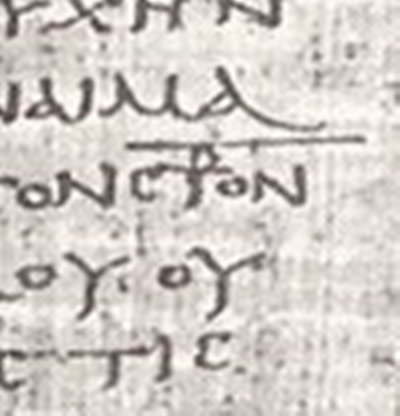 ΥΧΗΝ
ΝΑΙΜΑ
ΤΟΝϹ⳨ΟΝ
ΟΥ· ΟΥ
ΤΙΕ